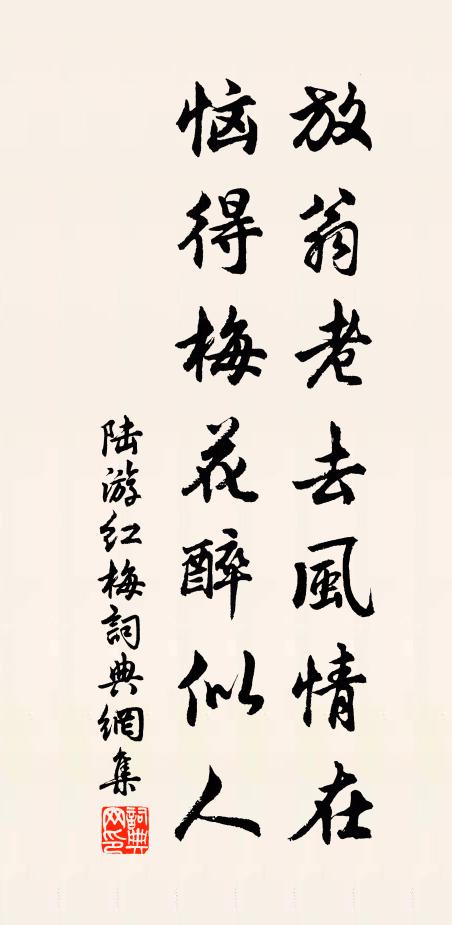 放翁老去風情在
恼得梅花醉似人
陆游红梅詞典網集
詞典网印